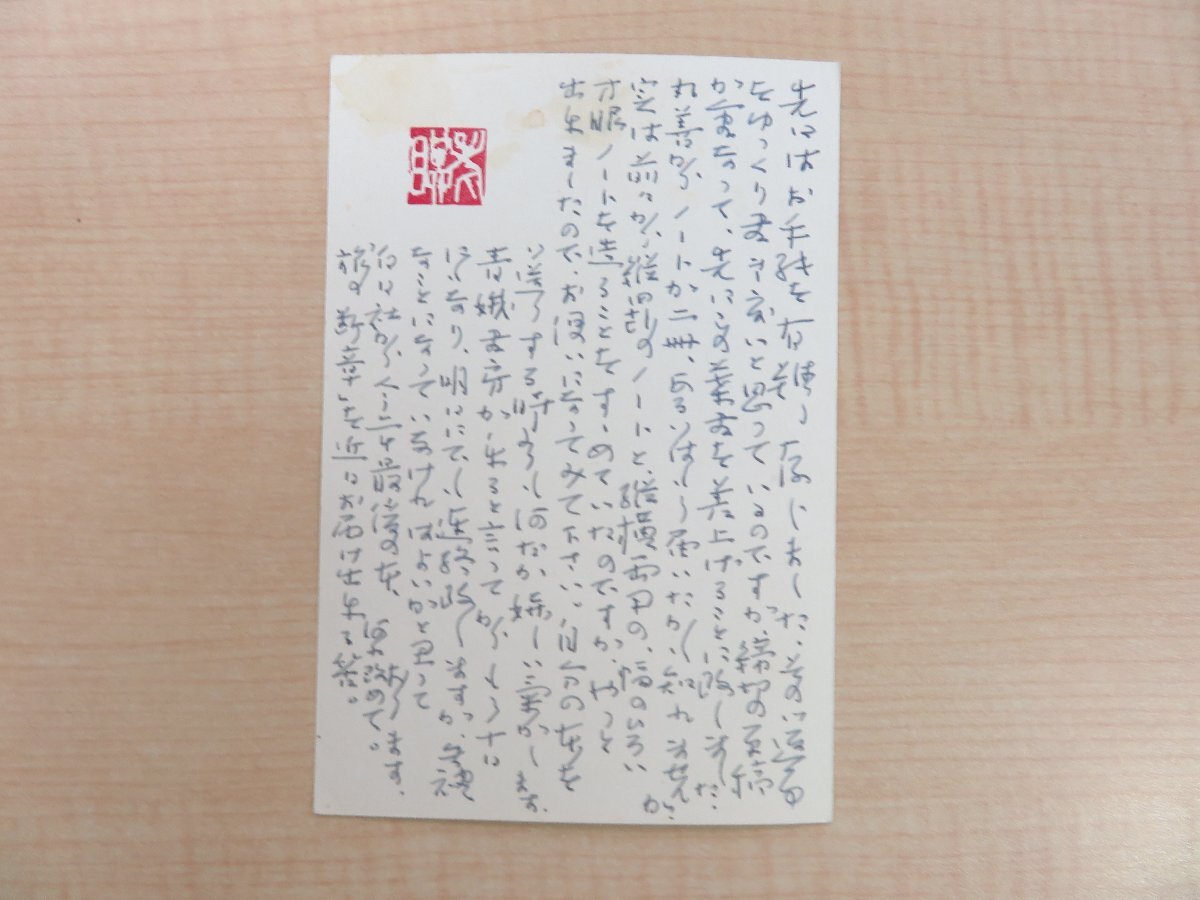 先日はお手紙を有難う存じました。その返事
をゆっくり書き度いと思っているのですが、締切の原稿
が重なって、先にこの葉書を差上げることに致しました。
丸善から、ノートが二冊、あるいはもう届いたかも知れませんが、
実は前々から、縦罫のノートと、縦横両用の、幅のひろい
方眼ノートを造ることをすすめていたのですが、やっと
出来ましたので、お使いになってみて下さい。自分の本を
送する時よりも何だか嬉しい気がします。
書き度が来ると言ってからもう十日
になり、明日にでも連絡しますが、失礼
なことになっていなければよいがと思って
社から今年最後の本、
旅の断章」を近日お届け出来る筈。